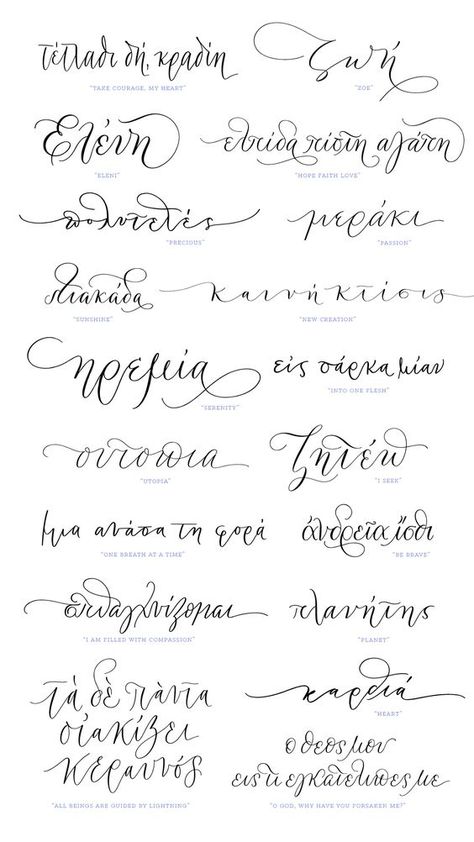 τέτλαθι δή, κραδίη
"TAKE COURAGE, MY HEART"
ζωή
"ZOE"
Ελένη
"ELENI"
ελπίδα πίστη αγάπη
"HOPE FAITH LOVE"
πολυτελές
"PRECIOUS"
μεράκι
"PASSION"
λιακάδα
"SUNSHINE"
καινή κτίσις
"NEW CREATION"
ηρεμία
"SERENITY"
εἰς σάρκα μίαν
"INTO ONE FLESH"
ουτοπια
"UTOPIA"
ζητέω
"I SEEK"
μια ανάσα τη φορά
"ONE BREATH AT A TIME"
ἀνδρεῖα ἴσθι
"BE BRAVE"
σπλαγχνίζομαι
"I AM FILLED WITH COMPASSION"
πλανήτης
"PLANET"
τὰ δὲ πάντα
οἰακίζει
κεραυνός
"ALL BEINGS ARE GUIDED BY LIGHTNING"
καρδιά
"HEART"
ο θεος μου
εις τι εγκατελιπες με
"O GOD, WHY HAVE YOU FORSAKEN ME?"